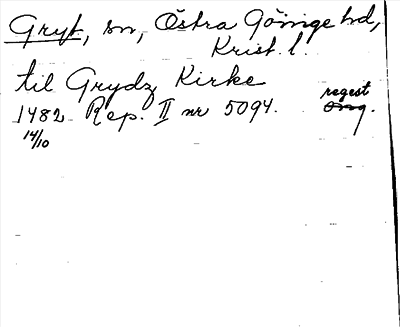 Gryt, sn, Östra Göinge hd,
Krist. l.
til Grydz Kirke
1482 Rep. II nr 5094. regest
14/10 orig.